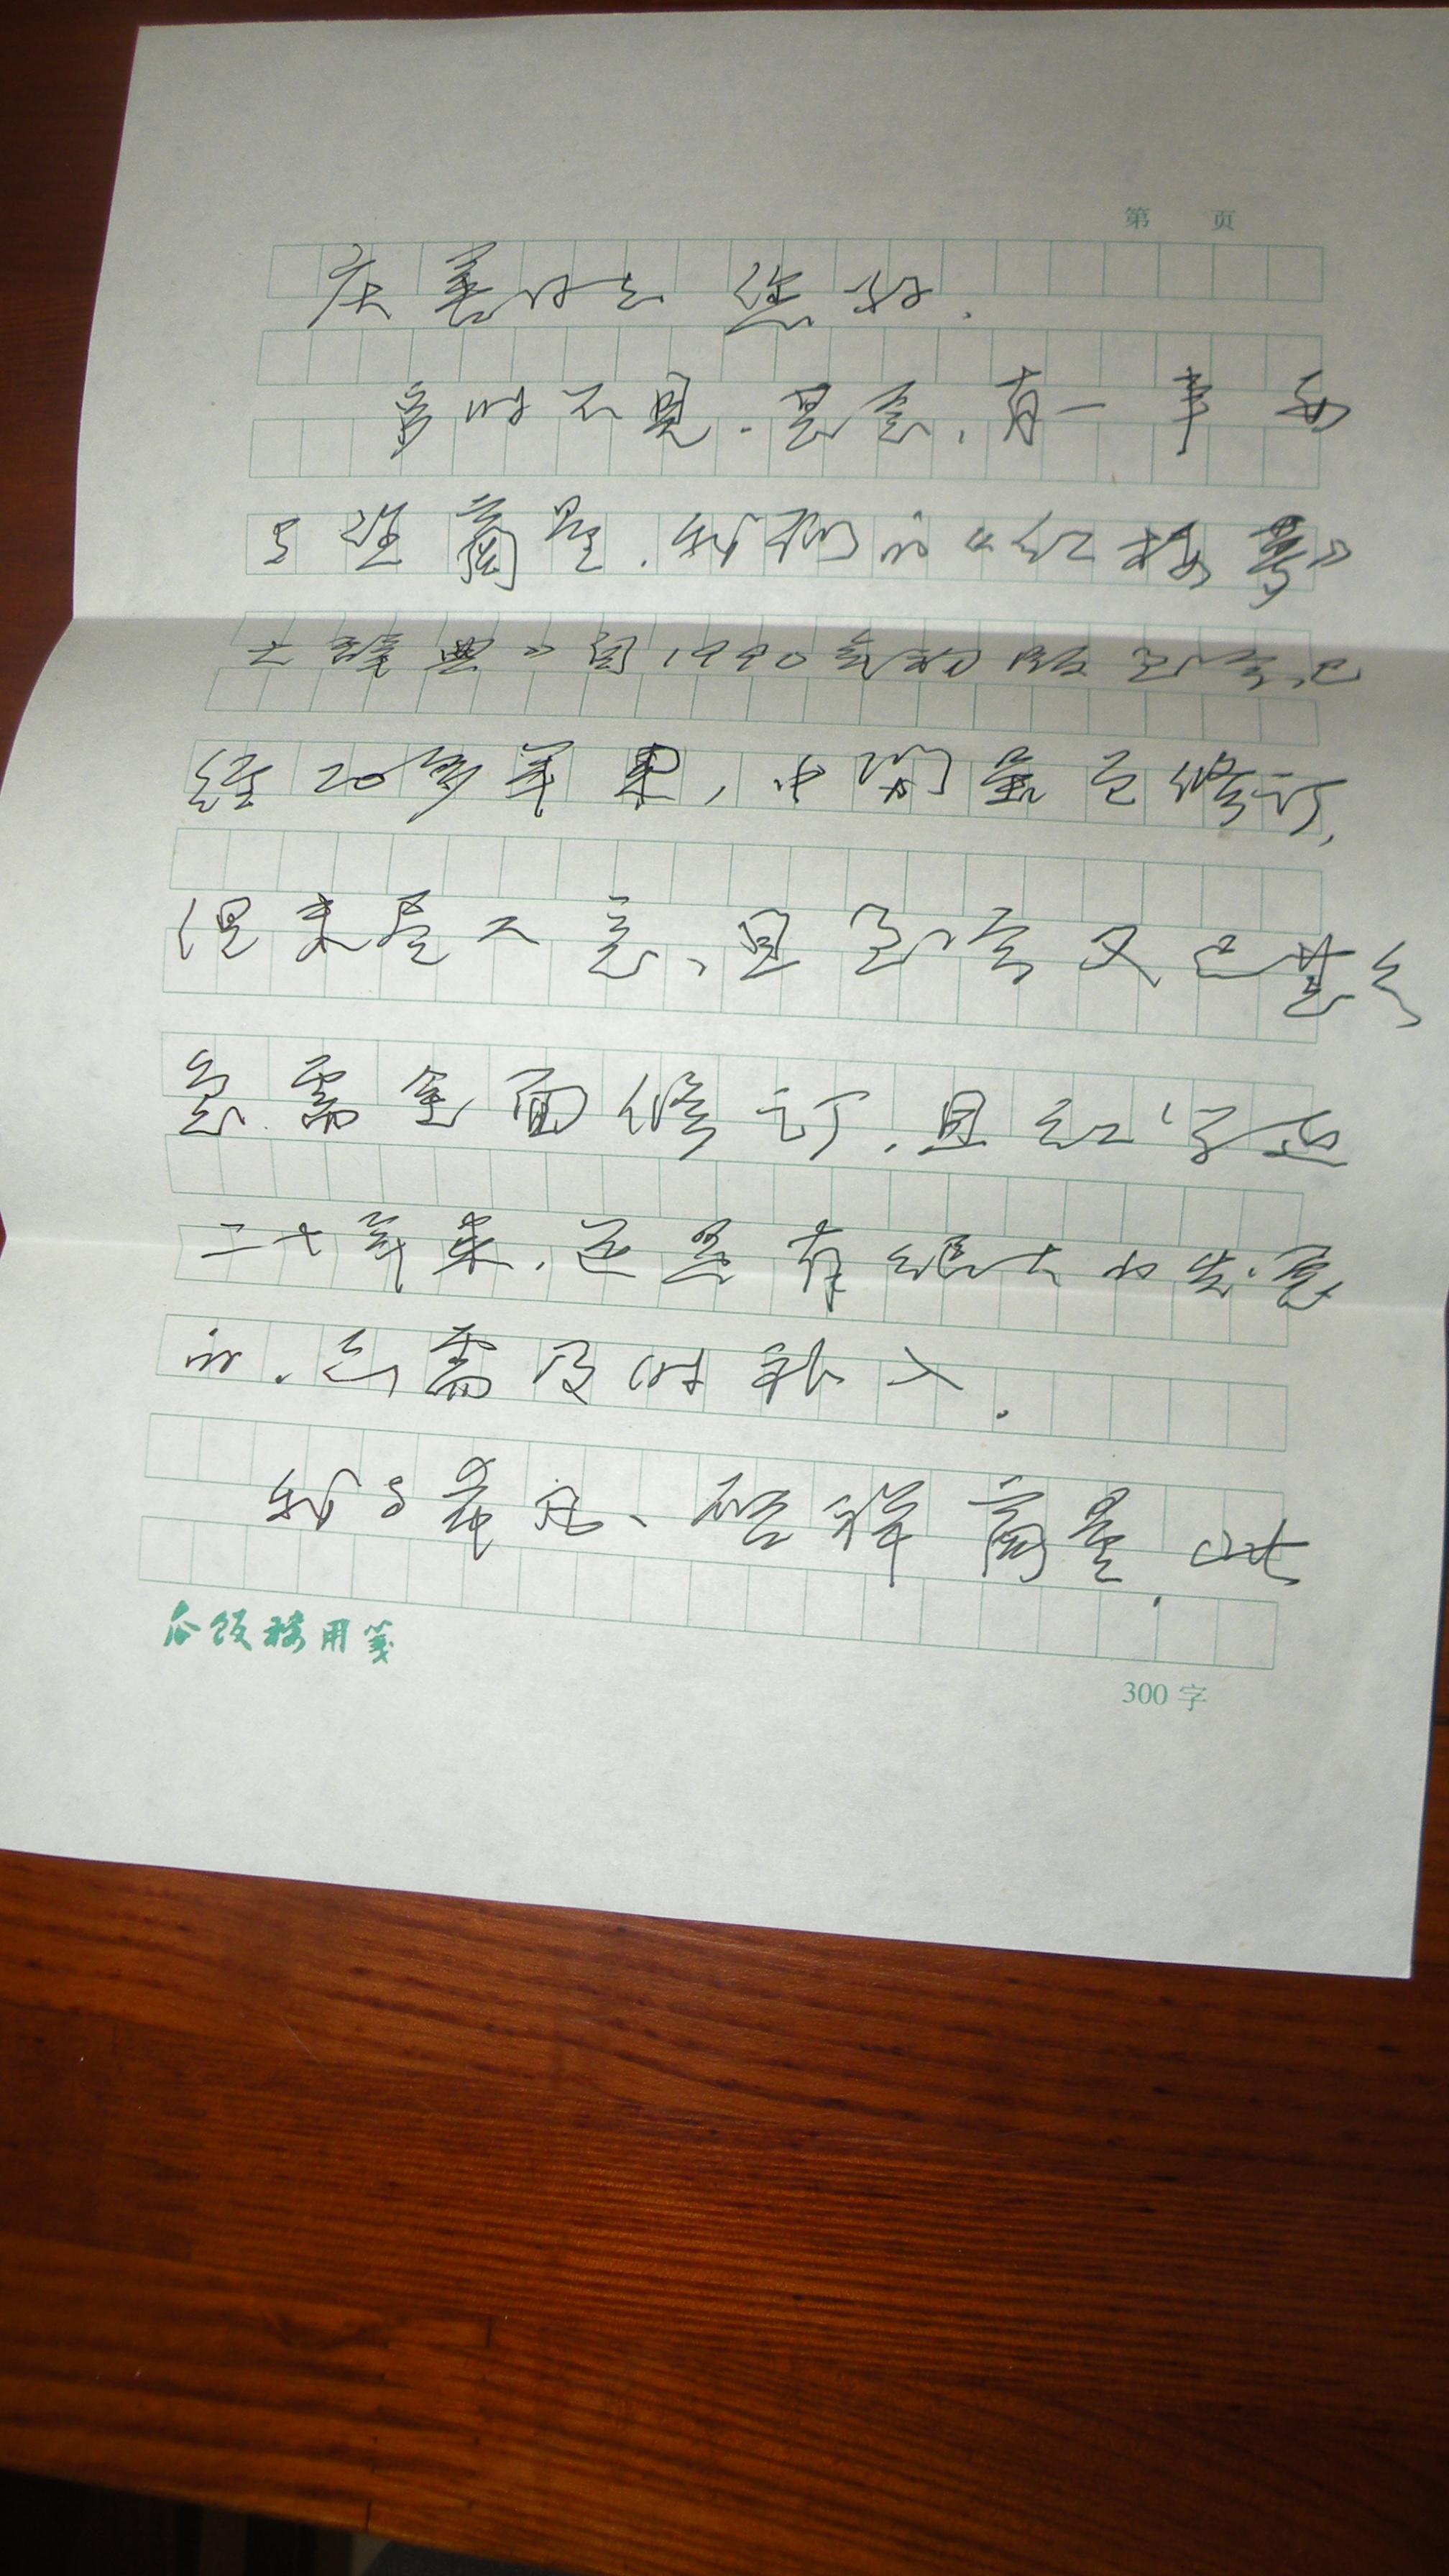 第 页
庆善同志 您好.
多时不见.甚念,有一事要
与您商量.我们的《红楼梦
大辞典》自1990年初版到今,已
经20多年来,中间虽已修订,
但未尽人意、且到今又已甚久
急需全面修订.且红学近
二十年来.还是有绝大的发展
的.亟需及时补入.
我与希凡、启祥商量.此
瓜饭楼用笺
300字